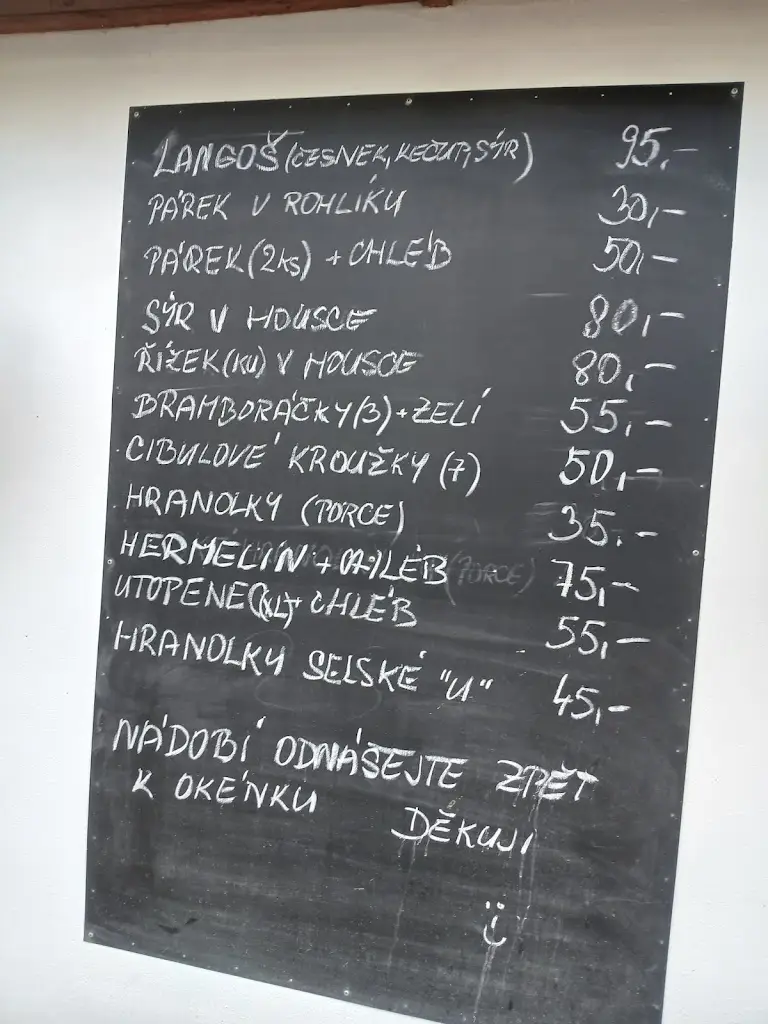 LANGOŠ (ČESNEK, KEČUP, SÝR) 95,-
PÁREK V ROHLÍKU 30,-
PÁREK (2KS) + CHLÉB 50,-
SÝR V HOUSCE 80,-
ŘÍZEK (KU) V HOUSCE 80,-
BRAMBORÁČKY (3) + ZELÍ 55,-
CIBULOVÉ KROUŽKY (7) 50,-
HRANOLKY (PORCE) 35.-
HERMELÍN + CHLÉB (PORCE) 75,-
UTOPENEC (XL) + CHLÉB 55,-
HRANOLKY SELSKÉ "U" 45,-
NÁDOBÍ ODNÁŠEJTE ZPĚT
K OKÉNKU DĚKUJI